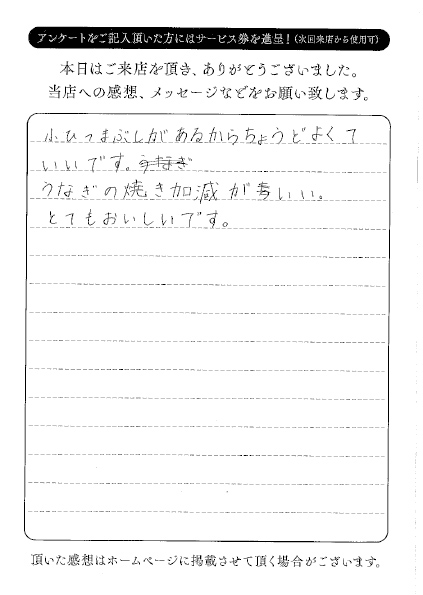 アンケートをご記入頂いた方にはサービス券を進呈!(次回来店から使用可)
本日はご来店を頂き、ありがとうございました。
当店への感想、メッセージなどをお願い致します。
小ひつまぶしがあるからちょうどよくて
いいです。
うなぎの焼き加減がいい。
とてもおいしいです。
頂いた感想はホームページに掲載させて頂く場合がございます。